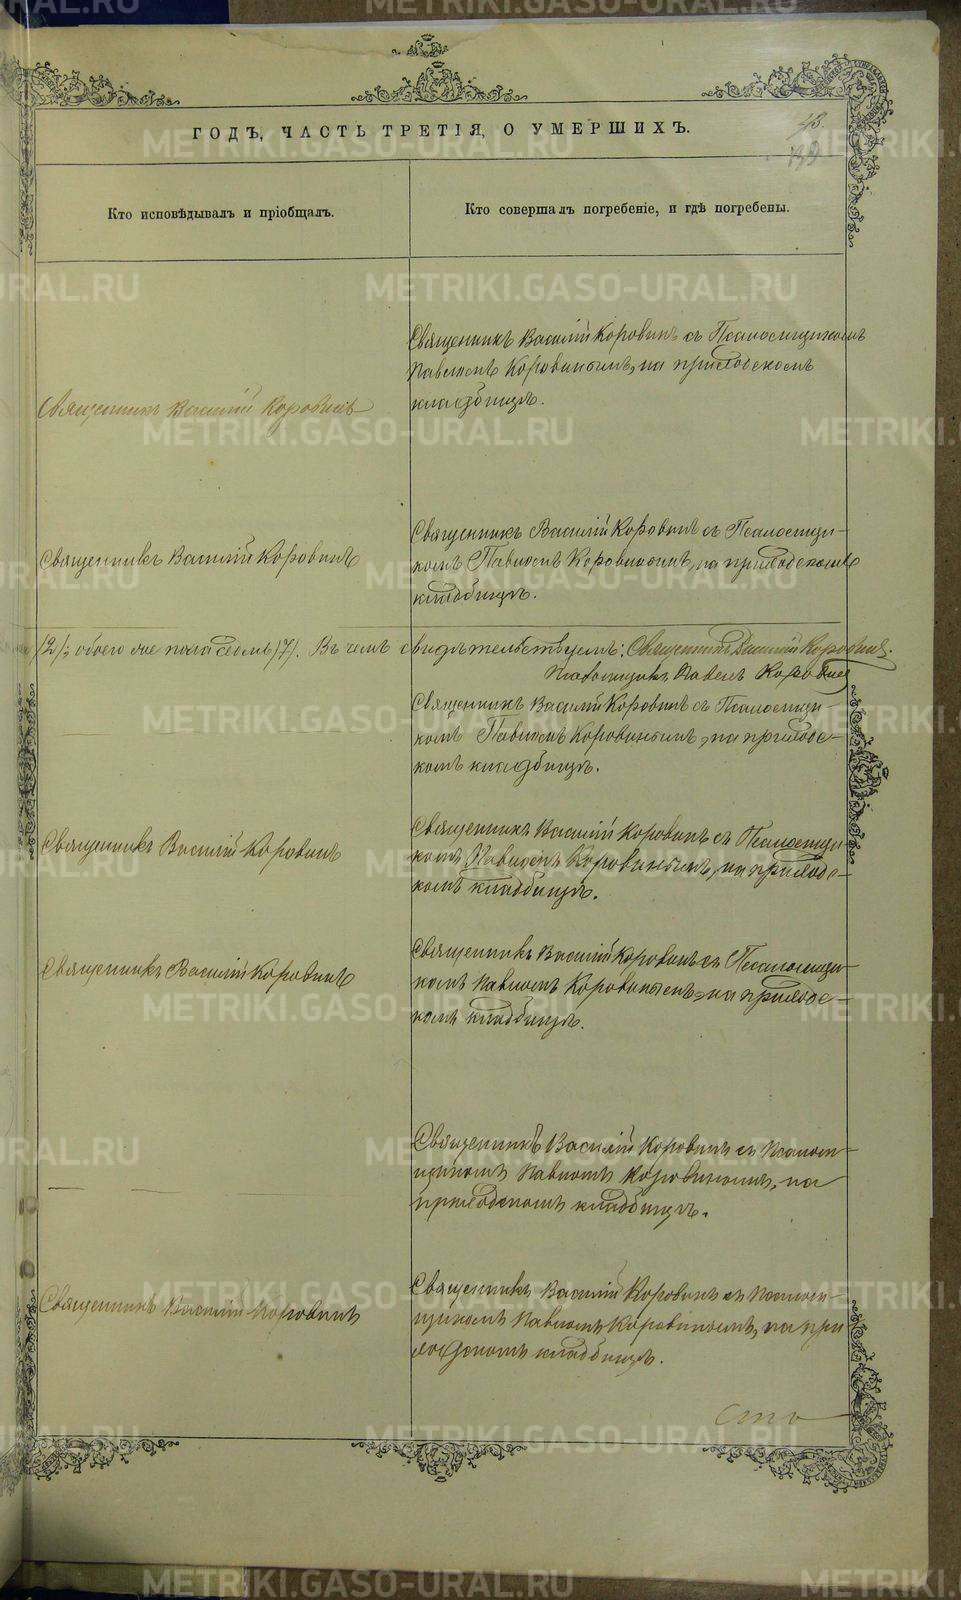 ГОДЪ, ЧАСТЬ ТРЕТІЯ, О УМЕРШИХЪ.
43.
Кто исповѣдывалъ и пріобщалъ.
Кто совершалъ погребеніе, и гдѣ погребены.
Священникъ Василій Коровинъ
Священникъ Василій Коровинъ съ Псаломщикомъ
Павломъ Коровинымъ, на приходскомъ
кладбищѣ.
Священникъ Василій Коровинъ
Священникъ Василій Коровинъ съ Псаломщи-
комъ Павломъ Коровинымъ, на приходскомъ
кладбищѣ.
(2); обоего же пола семь (7). Въ чемъ свидѣтельствуемъ: Священникъ Василій Коровинъ.
Псаломщикъ Павелъ Коровинъ
Священникъ Василій Коровинъ съ Псаломщи-
комъ Павломъ Коровинымъ, на приходс-
комъ кладбищѣ.
Священникъ Василій Коровинъ
Священникъ Василій Коровинъ съ Псаломщи-
комъ Павломъ Коровинымъ, на приходс-
комъ кладбищѣ.
Священникъ Василій Коровинъ
Священникъ Василій Коровинъ съ Псаломщи-
комъ Павломъ Коровинымъ, на приходс-
комъ кладбищѣ.
Священникъ Василій Коровинъ съ Псалом-
щикомъ Павломъ Коровинымъ, на
приходскомъ кладбищѣ.
Священникъ Василій Коровинъ
Священникъ Василій Коровинъ съ Псалом-
щикомъ Павломъ Коровинымъ, на при
ходскомъ кладбищѣ.
METRIKI.GASO-URAL.RU